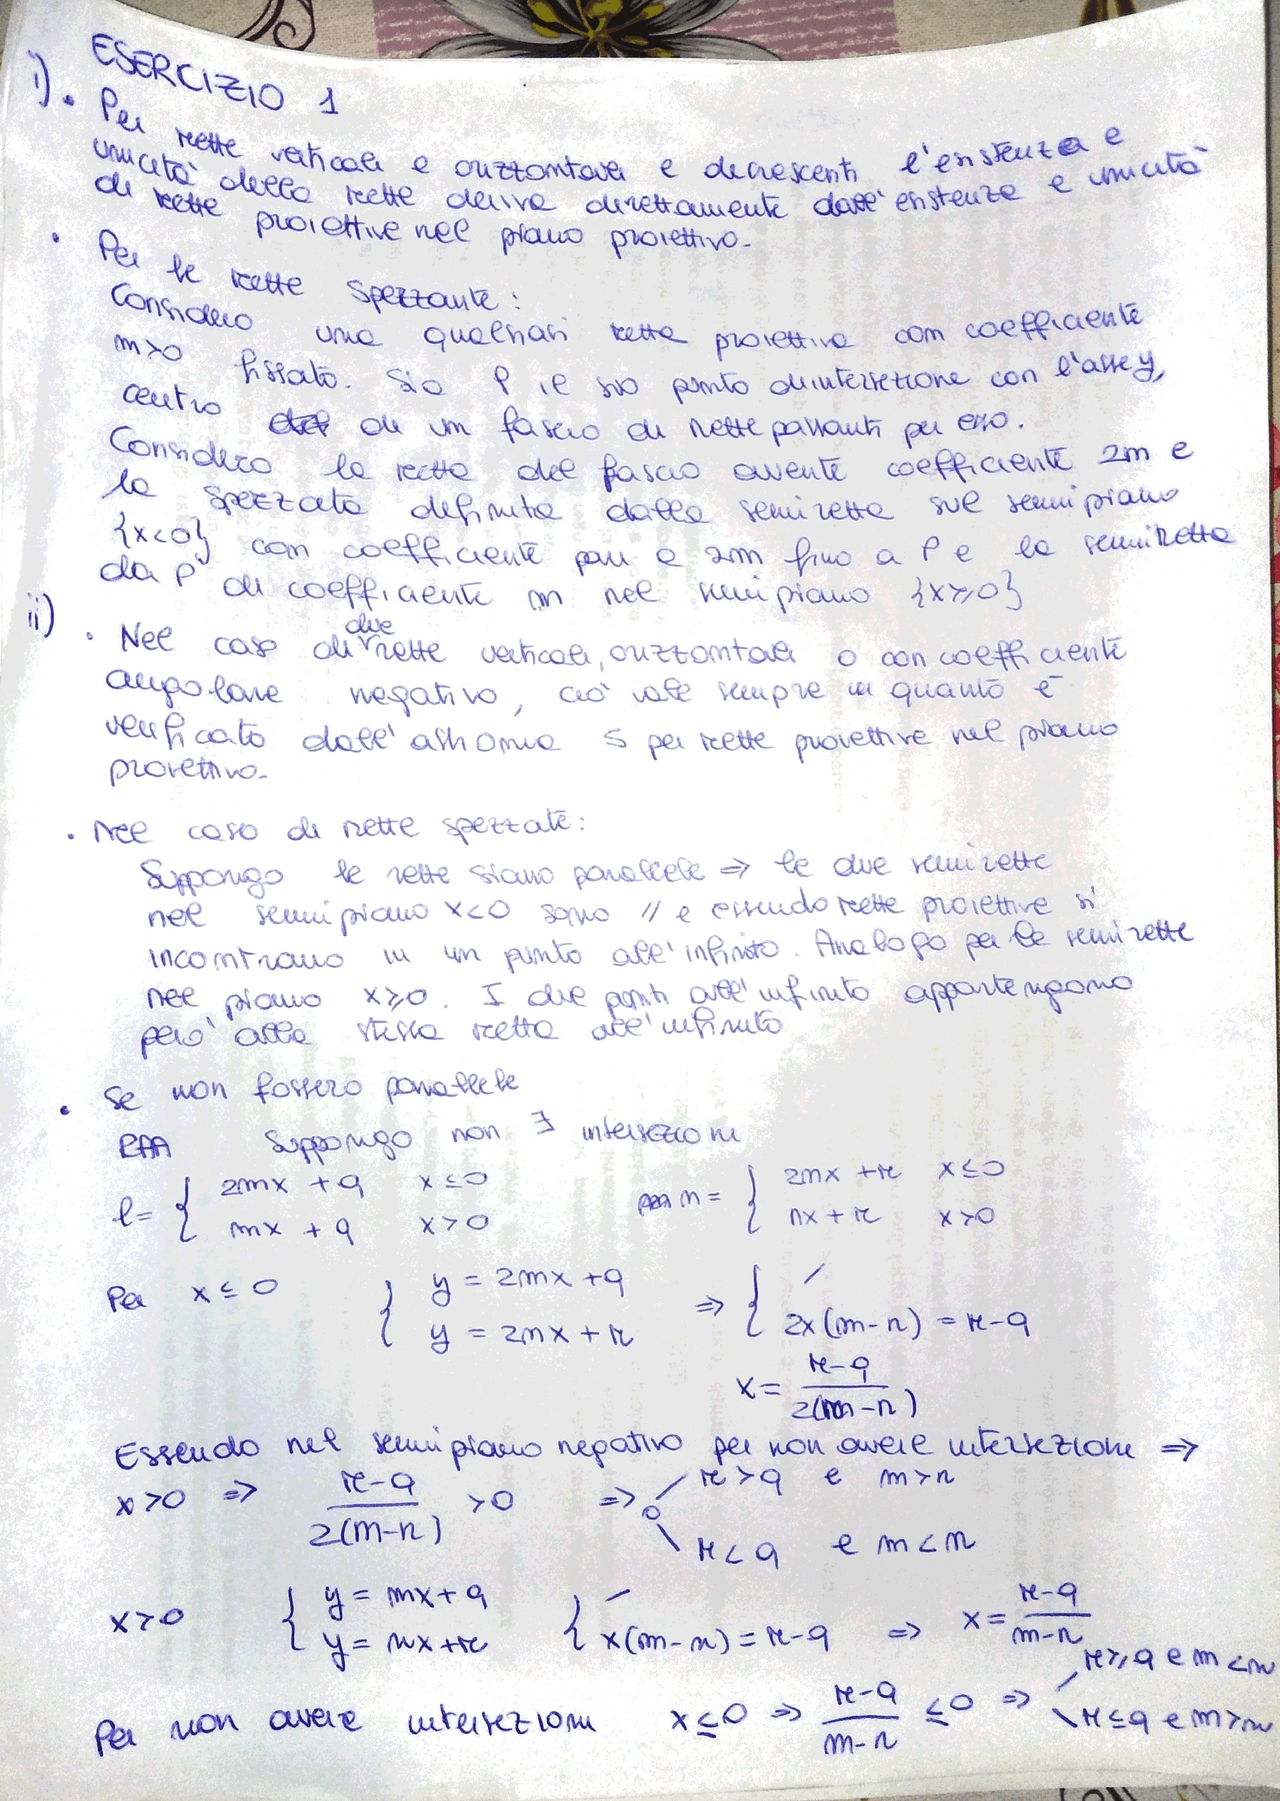 ESERCIZIO 1
i) • Per rette verticali e orizzontali e decrescenti l'esistenza e
unicità della rette deriva direttamente dall'esistenza e unicità
di rette proiettive nel piano proiettivo.
• Per le rette spezzate:
Considero una qualsiasi retta proiettiva con coefficiente
m>0 fissato. Sia P il suo punto di intersezione con l'asse y,
centro di un fascio di rette passanti per esso.
Considero la retta del fascio avente coefficiente 2m e
la spezzata definita dalla semiretta sul semipiano
{x<0} con coefficiente pari a 2m fino a P e la semiretta
da P di coefficiente m nel semipiano {x≥0}
ii) • Nel caso di due rette verticali, orizzontali o con coefficiente
angolare negativo, ciò vale sempre in quanto è
verificato dall'assioma 5 per rette proiettive nel piano
proiettivo.
• Nel caso di rette spezzate:
Suppongo le rette siano parallele ⇒ le due semirette
nel semipiano x<0 sono // e essendo rette proiettive si
incontrano in un punto all'infinito. Analogo per le semirette
nel piano x≥0. I due punti all'infinito appartengono
però alla stessa retta all'infinito
• Se non fossero parallele
RAA Suppongo non ∃ intersezioni
l = { 2mx + q x ≤ 0 n = { 2nx + r x ≤ 0
mx + q x > 0 nx + r x > 0
Per x ≤ 0 { y = 2mx + q ⇒ { /
y = 2nx + r 2x(m-n) = r-q
x = r-q / 2(m-n)
Essendo nel semipiano negativo per non avere intersezione ⇒
x>0 ⇒ r-q / 2(m-n) > 0 ⇒ o r>q e m>n
r<q e m<n
x>0 { y = mx + q { / ⇒ x = r-q / m-n
y = nx + r x(m-n) = r-q
r≥q e m<n
Per non avere intersezioni x≤0 ⇒ r-q / m-n ≤0 ⇒ r≤q e m>n